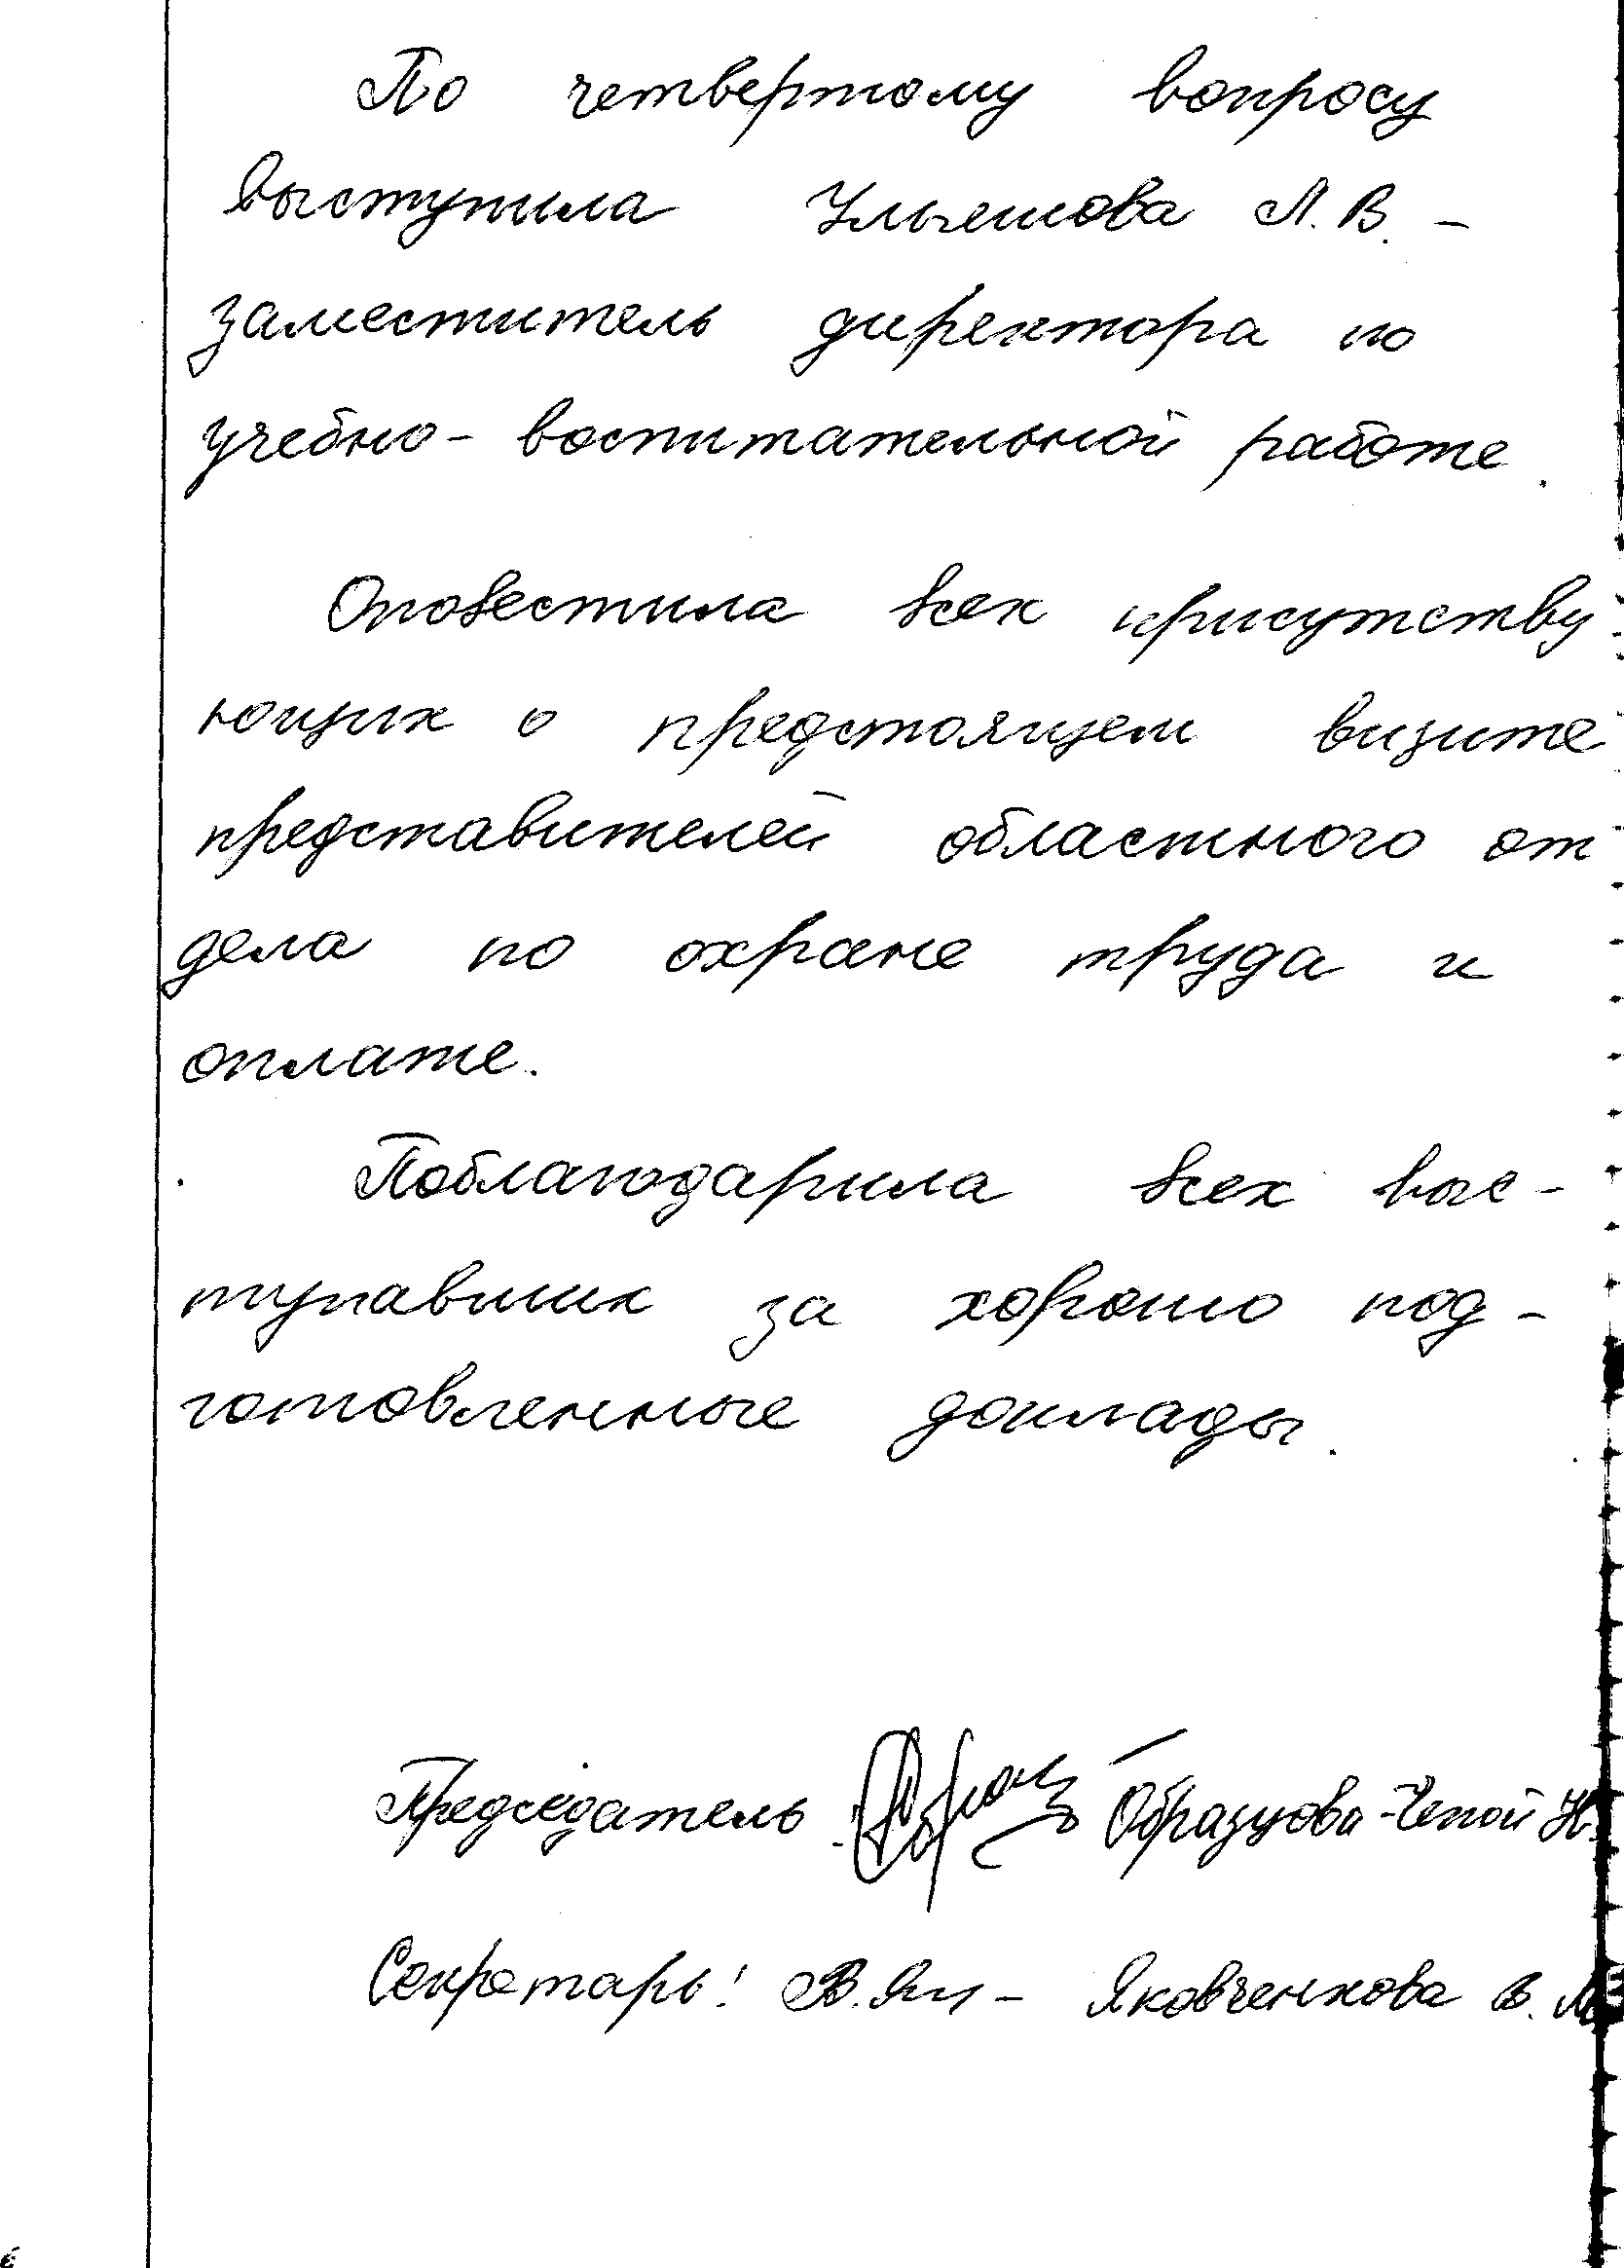 По четвертому вопросу
выступила Ульешова Л.В. -
заместитель директора по
учебно-воспитательной работе.
Оповестила всех присутству
ющих о предстоящем визите
представителей областного от
дела по охране труда и
оплате.
Поблагодарила всех выс-
тупавших за хорошо под-
готовленные доклады.
Председатель Образцова-Чепой Н.
Секретарь: Яковченкова В. М